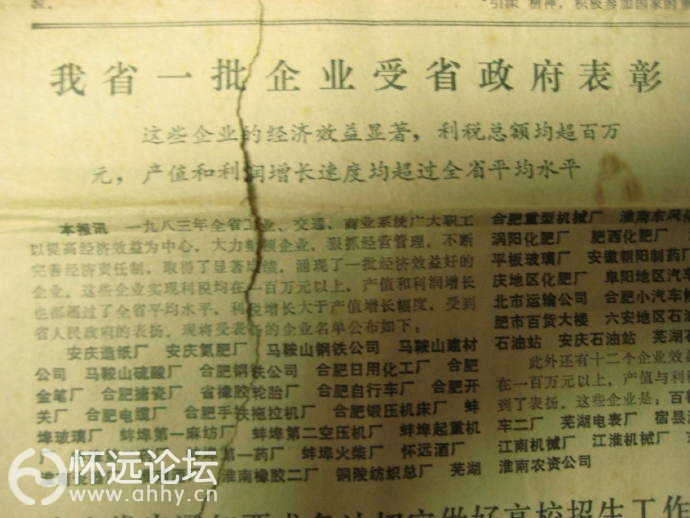 我省一批企业受省政府表彰
这些企业的经济效益显著，利税总额均超百万
元，产值和利润增长速度均超过全省平均水平
本报讯 一九八三年全省工业、交通、商业系统广大职工
以提高经济效益为中心，大力整顿企业，狠抓经营管理，不断
完善经济责任制，取得了显著成绩，涌现了一批经济效益好的
企业。这些企业实现利税均在一百万元以上，产值和利润增长
也都超过了全省平均水平，利税增长大于产值增长幅度，受到
省人民政府的表扬。现将受表扬的企业名单公布如下：
安庆造纸厂 安庆氮肥厂 马鞍山钢铁公司 马鞍山建材
公司 马鞍山硫酸厂 合肥钢铁公司 合肥日用化工厂 合肥
金笔厂 合肥搪瓷厂 省橡胶轮胎厂 合肥自行车厂 合肥开
关厂 合肥电缆厂 合肥手扶拖拉机厂 合肥锻压机床厂 蚌
埠玻璃厂 蚌埠第一麻纺厂 蚌埠第二空压机厂 蚌埠起重机
厂 蚌埠第一药厂 蚌埠火柴厂 怀远酒厂
淮南橡胶二厂 铜陵纺织总厂 芜湖
合肥重型机械厂 淮南东风
涡阳化肥厂 肥西化肥厂
平板玻璃厂 安徽朝阳制药厂
庆地区化肥厂 阜阳地区
北市运输公司 合肥小汽车
肥市百货大楼 六安地区石油
石油站 安庆石油站 芜湖石
此外还有十二个企业效
在一百万元以上，产值与利
到了表扬。这些企业是：百
车二厂 芜湖电表厂 宿县
江南机械厂 江淮机械厂
淮南农资公司
怀远论坛
www.ahhy.cn